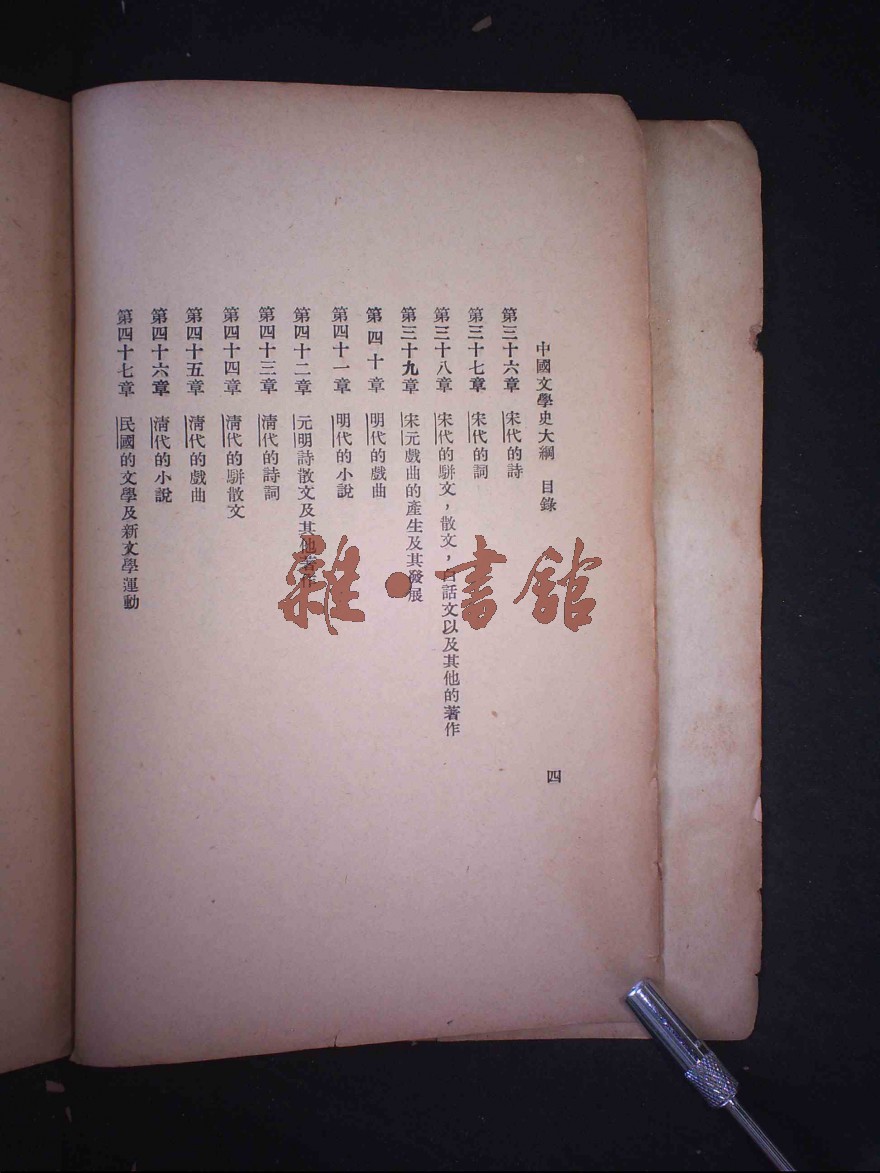 中國文學史大綱　目錄
四
第三十六章　宋代的詩
第三十七章　宋代的詞
第三十八章　宋代的駢文，散文，白話文以及其他的著作
第三十九章　宋元戲曲的產生及其發展
第四十章　明代的戲曲
第四十一章　明代的小說
第四十二章　元明詩散文及其他著作
第四十三章　清代的詩詞
第四十四章　清代的駢散文
第四十五章　清代的戲曲
第四十六章　清代的小說
第四十七章　民國的文學及新文學運動
雜·書館